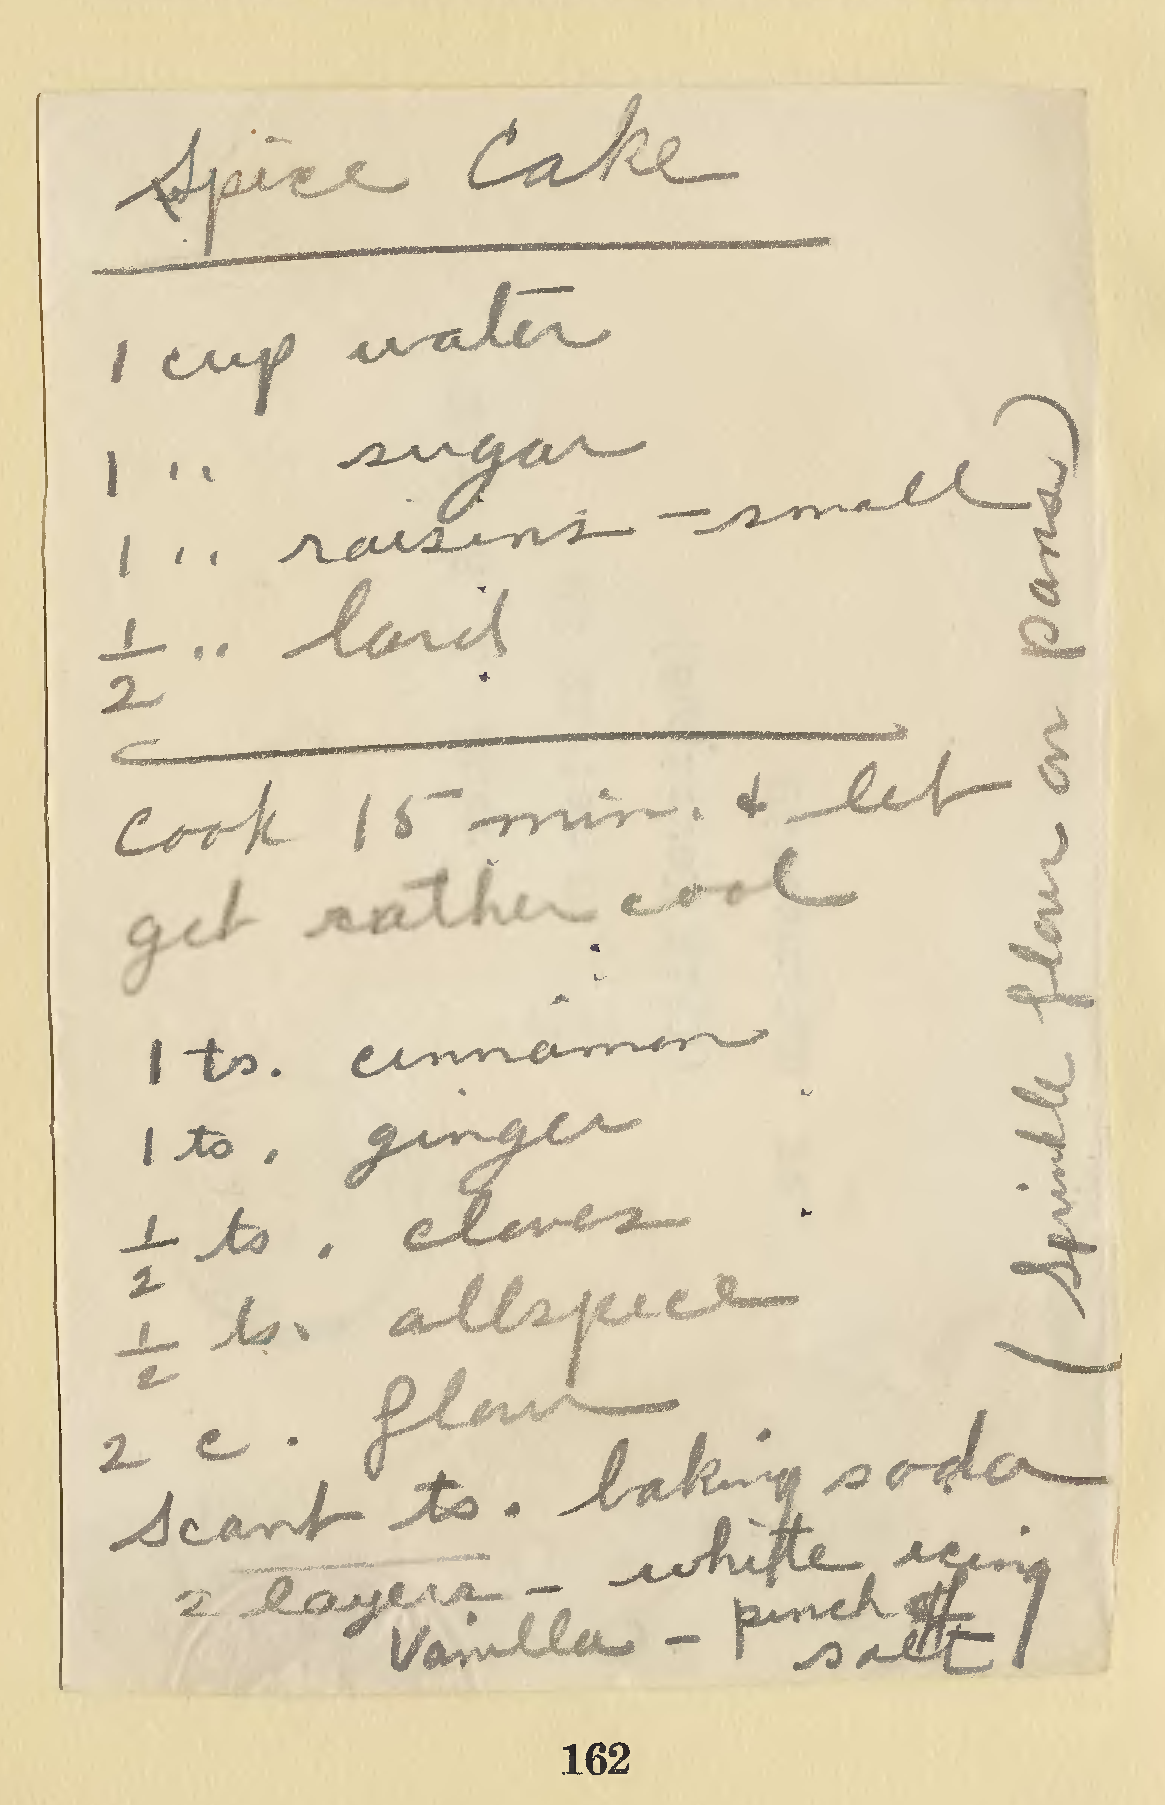 Spice Cake
1 cup water
1 " sugar
1 " raisins - small
1/2 " lard
Cook 15 min. & let
get rather cool
1 ts. cinnamon
1 ts. ginger
1/2 ts. cloves
1/2 ts. allspice
2 c. flour
Scant ts. baking soda
2 layers - white icing
Vanilla - pinch of
salt
(Sprinkle flour on pans)
162